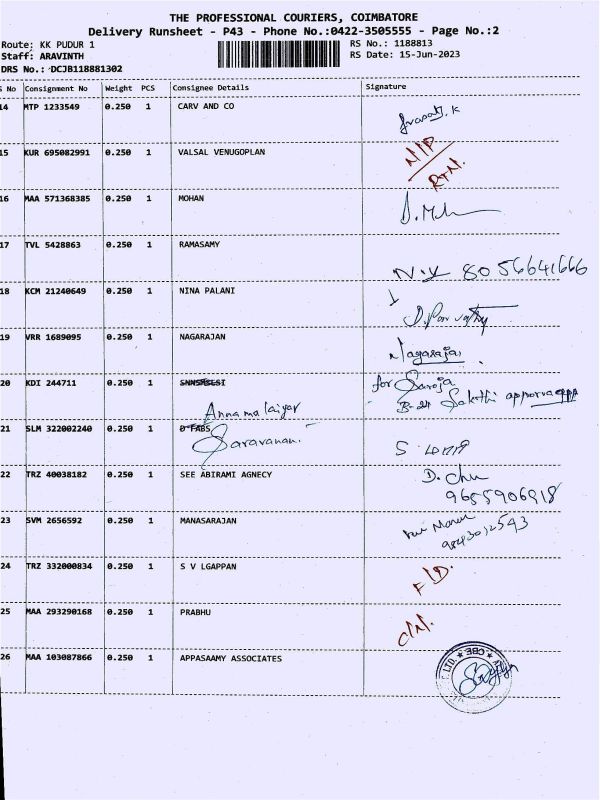 THE PROFESSIONAL COURIERS, COIMBATORE
Delivery Runsheet - P43 - Phone No.:0422-3505555 - Page No.:2
Route: KK PUDUR 1 RS No.: 1188813
Staff: ARAVINTH RS Date: 15-Jun-2023
DRS No.: DCJB118881302
S No Consignment No Weight PCS Consignee Details Signature
14 MTP 1233549 0.250 1 CARV AND CO
15 KUR 695082991 0.250 1 VALSAL VENUGOPLAN N/P
RTN.
16 MAA 571368385 0.250 1 MOHAN
17 TVL 5428863 0.250 1 RAMASAMY 8056641666
18 KCM 21240649 0.250 1 NINA PALANI D. Parvathy
19 VRR 1689095 0.250 1 NAGARAJAN Nagaraja
20 KDI 244711 0.250 1 for Saroja
Annamalaiyar B-24 Sakthi
21 SLM 322002240 0.250 1 D FABS
Saravanan.
22 TRZ 40038182 0.250 1 SEE ABIRAMI AGNECY D. Chu
9655906918
23 SVM 2656592 0.250 1 MANASARAJAN
9843012543
24 TRZ 332000834 0.250 1 S V LGAPPAN F/D.
25 MAA 293290168 0.250 1 PRABHU C/N.
26 MAA 103087866 0.250 1 APPASAAMY ASSOCIATES LTD. ★ CBE ★